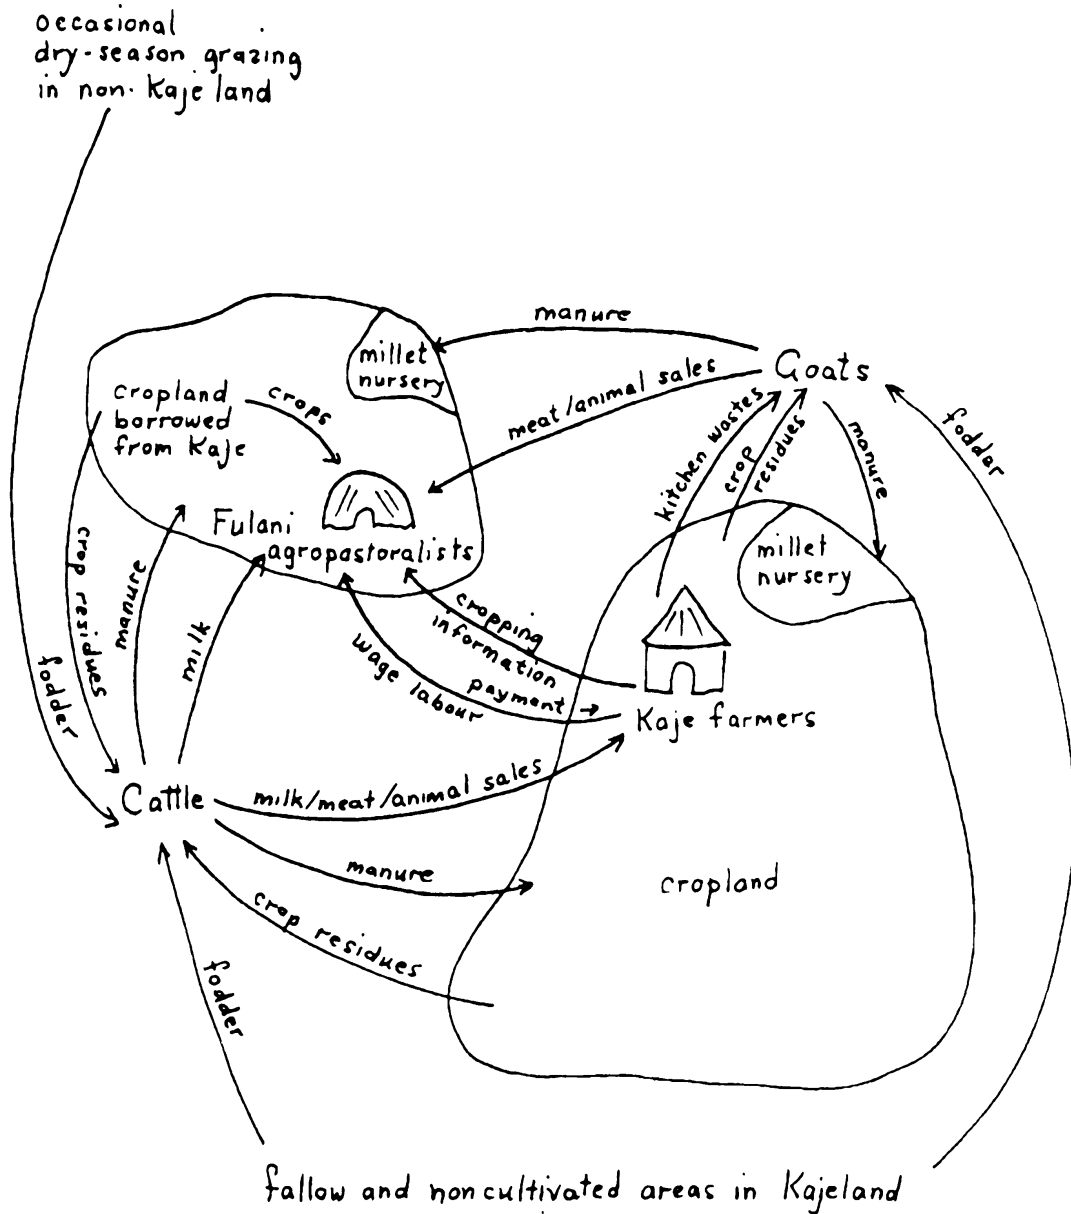 occasional
dry-season grazing
in non-Kaje land
manure
millet
nursery
Goats
meat/animal sales
cropland
borrowed
from Kaje
crops
kitchen wastes
crop
residues
manure
foddar
Fulani
agropastoralists
millet
nursery
crop residues
manure
milk
fodder
cropping
information
wage labour
payment
Kaje farmers
Cattle
milk/meat/animal sales
manure
cropland
crop residues
fodder
fallow and noncultivated areas in Kajeland